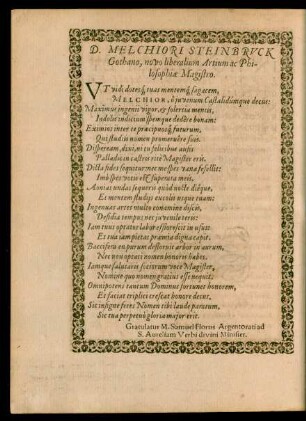 D. MELCHIORI STEINBRVCK
Gothano, novo liberalium Artium ac Phi-
losophiæ Magistro.
VT vidi dotesq́; tuas mentemq́; sagacem,
MELCHIOR, ô juvenum Castalidúmque decus:
Maximus ingenii vigor, & solertia mentis,
Indolis indicium spemque dedêre bonam:
Eximios inter te præcipuosq́; futurum,
Qui studiis nomen promeruêre suis.
Dispeream, dixi, ni tu felicibus ausis
Palladiæ in castris ritè Magister eris.
Dicta fides sequitur: nec me spes vana fefellit:
Imò spes votis est superata meis,
Aonias undas sequeris quid nocte diéque,
Et mentem studiis excolis usque tuam:
Ingenuas artes multo conamine discis,
Desidia tempus nec juvenile teris:
Iam tuus optatos labor efflorescit in usus:
Et tua jam pietas præmia digna capit.
Baccifera en parum desflorvit arbor in aurum,
Nec non optati nomen honoris habes.
Iamque salutaris sociorum voce Magister,
Numine quo nomen gratius esse nequit:
Omnipotens tantum Dominus fortunet honorem,
Et faciat triplici crescat honore decus,
Sic insigne feres Nomen tibi laude perenni,
Sic tua perpetuò gloria major erit.
Gratulatus M. Samuel Florus Argentorati ad
S. Aureliam Verbi divini Minister.